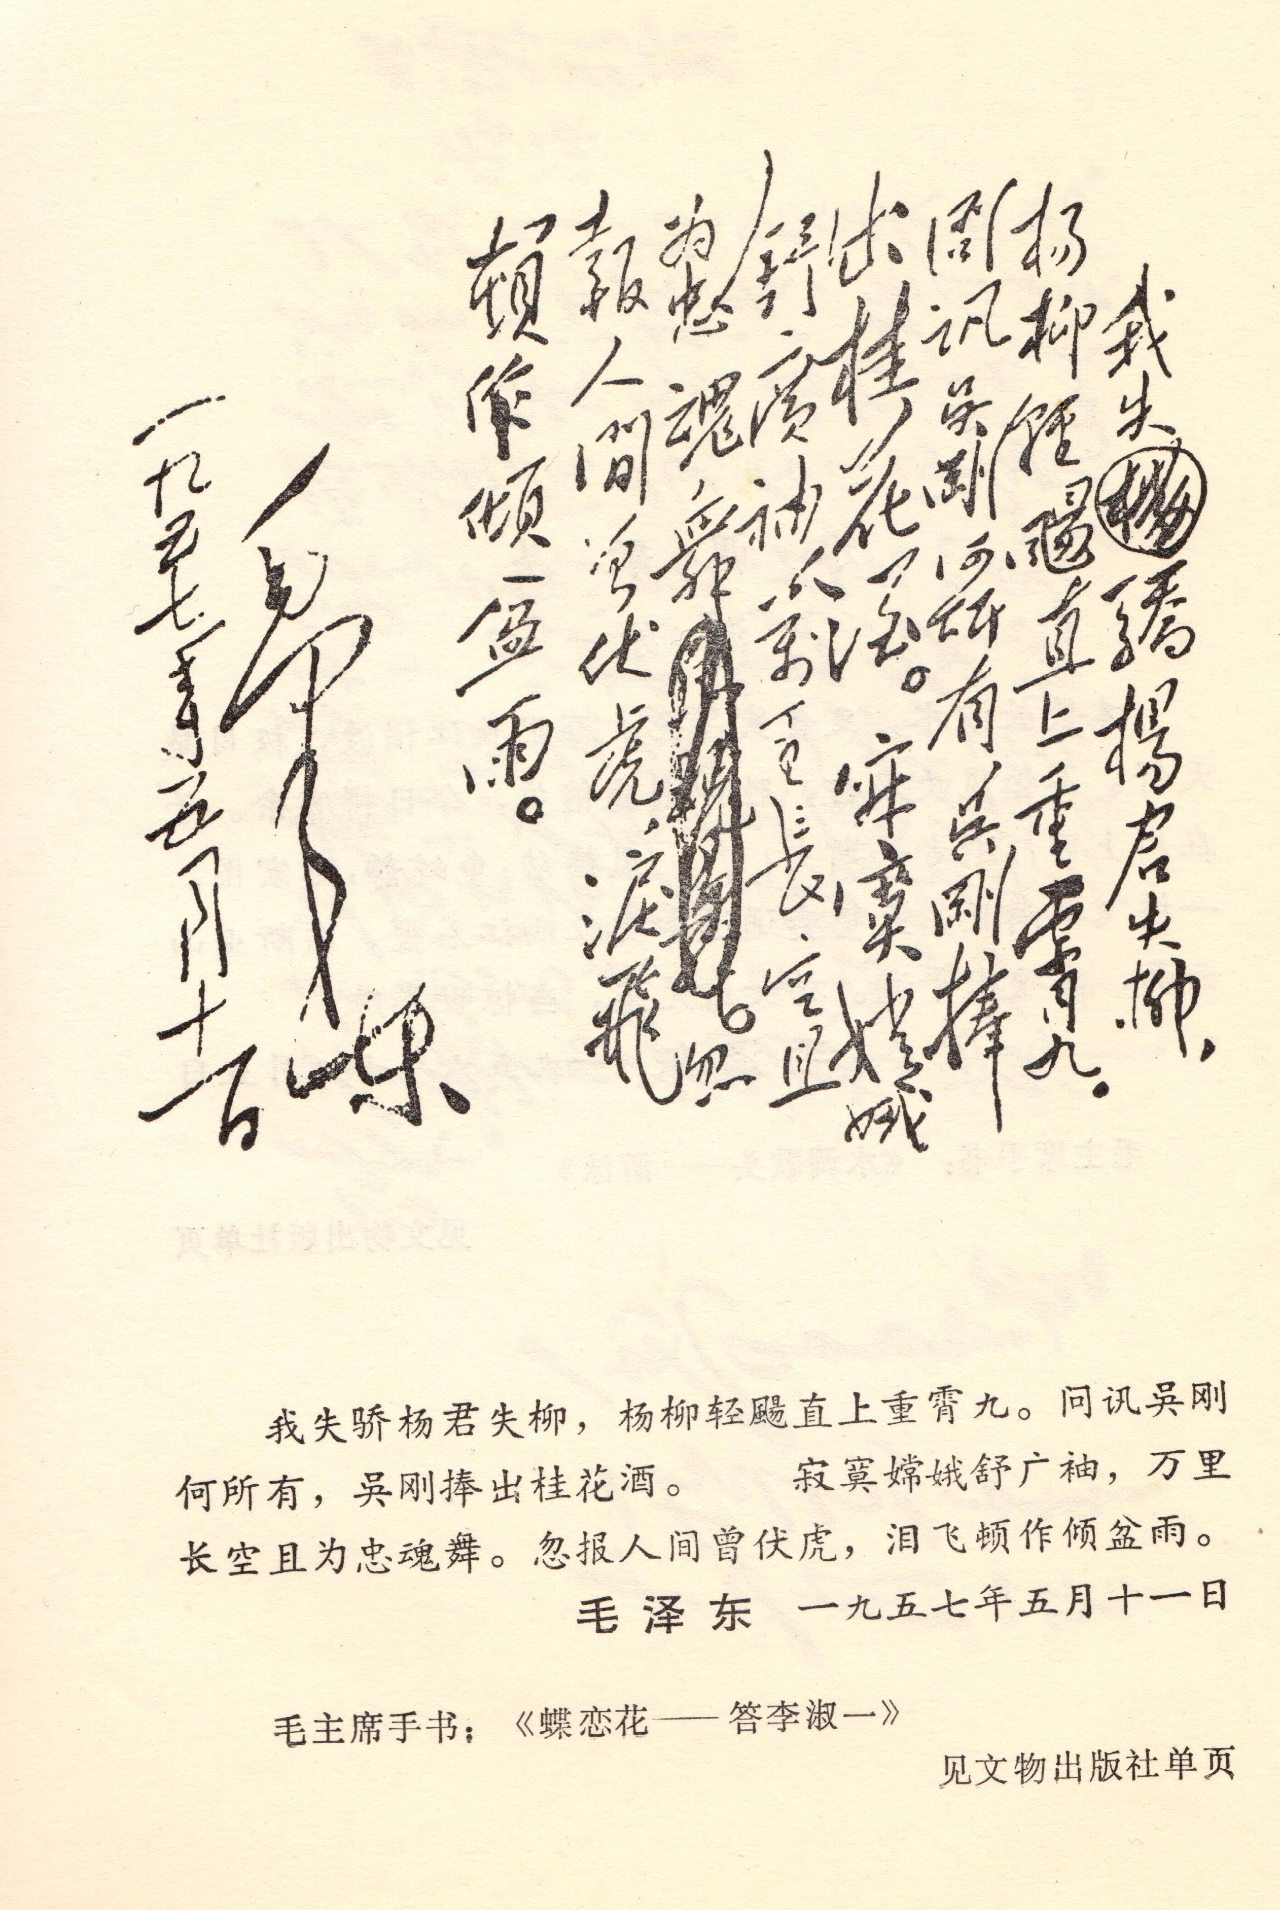 我失楊驕楊君失柳，
杨柳軽颺直上重霄九。
问讯吴刚何所有，吴刚捧
出桂花酒。寂寞嫦娥
舒广袖，万里長空且
为忠魂舞。忽
報人間曾伏虎，淚飛
頓作傾盆雨。
毛泽东
一九五七年五月十一日
我失骄杨君失柳，杨柳轻颺直上重霄九。问讯吴刚
何所有，吴刚捧出桂花酒。　　寂寞嫦娥舒广袖，万里
长空且为忠魂舞。忽报人间曾伏虎，泪飞顿作倾盆雨。
毛泽东　一九五七年五月十一日
毛主席手书：《蝶恋花——答李淑一》
见文物出版社单页